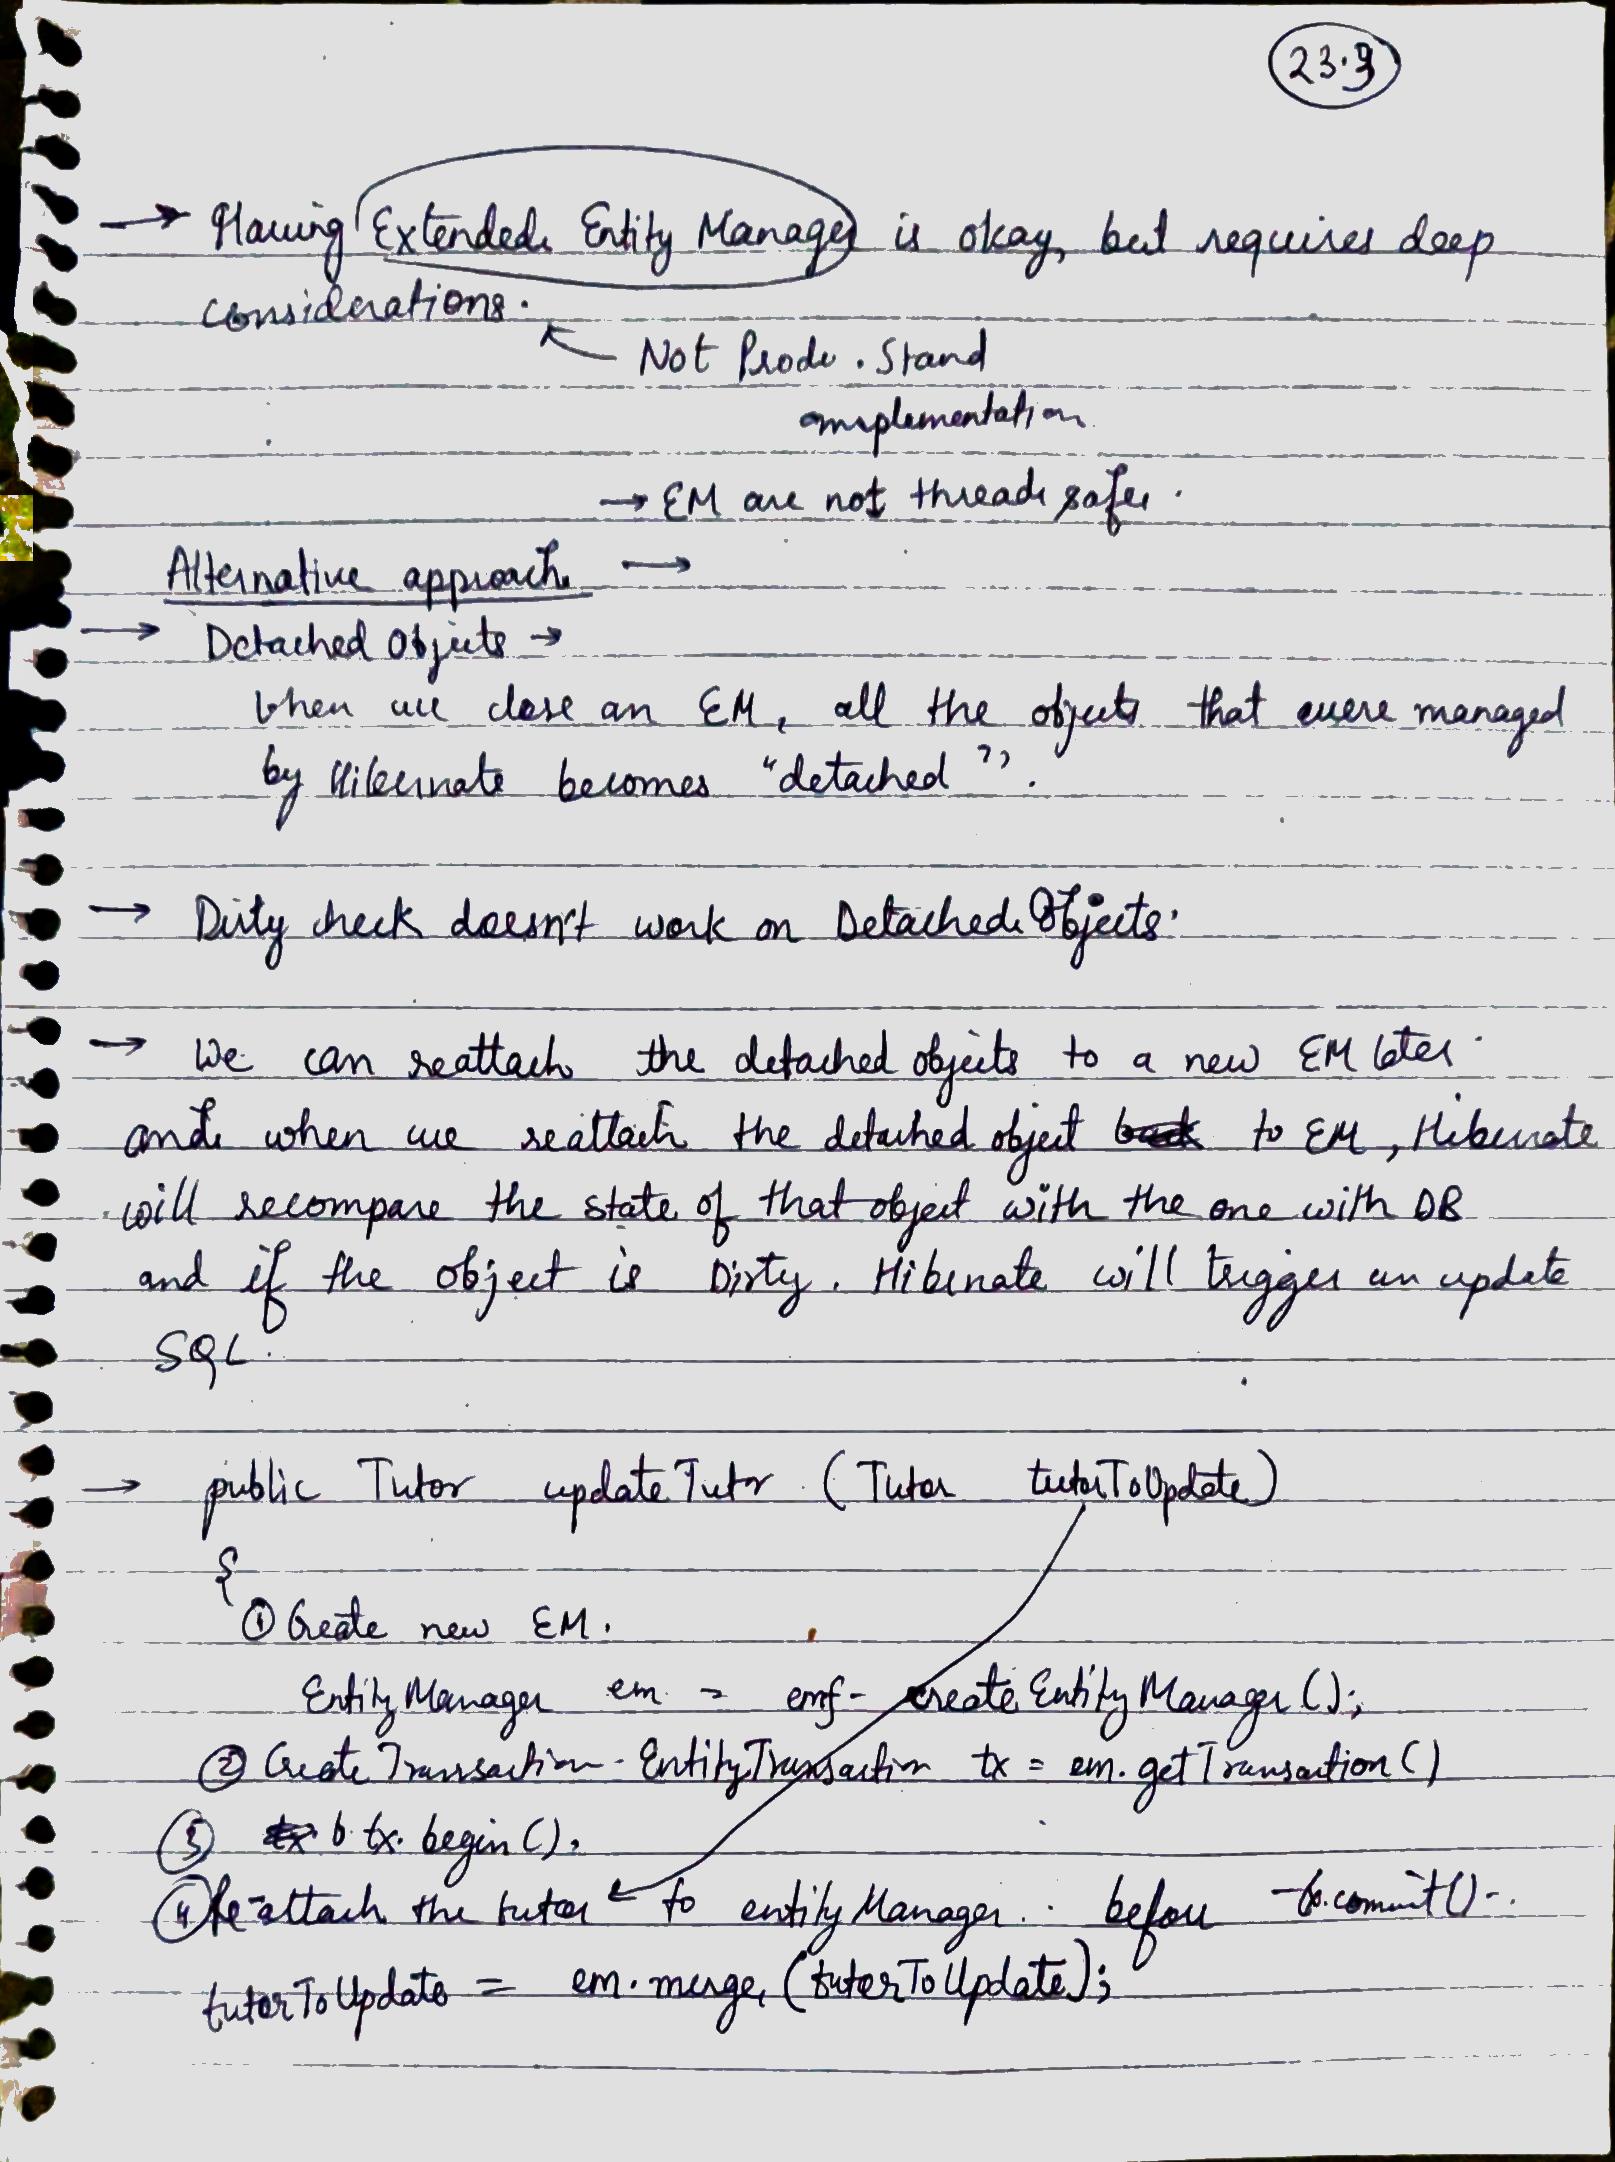 23.3
→ Having Extended Entity Manager is okay, but requires deep
considerations.
Not Prode. Stand
implementation
→ EM are not thread safe.
Alternative approach →
→ Detached Objects →
When we close an EM, all the objects that were managed
by Hibernate becomes "detached".
→ Dirty check doesn't work on Detached Objects.
→ We can reattach the detached objects to a new EM later.
and when we reattach the detached object to EM, Hibernate
will recompare the state of that object with the one with DB
and if the object is Dirty. Hibernate will trigger an update
SQL.
→ public Tutor updateTutor (Tutor tutorToUpdate)
{
① Create new EM.
EntityManager em = emf. createEntityManager();
② Create Transaction - EntityTransaction tx = em.getTransaction()
③ tx. begin();
④ Re-attach the tutor to entityManager.. before tx.commit()..
tutorToUpdate = em.merge(tutorToUpdate);